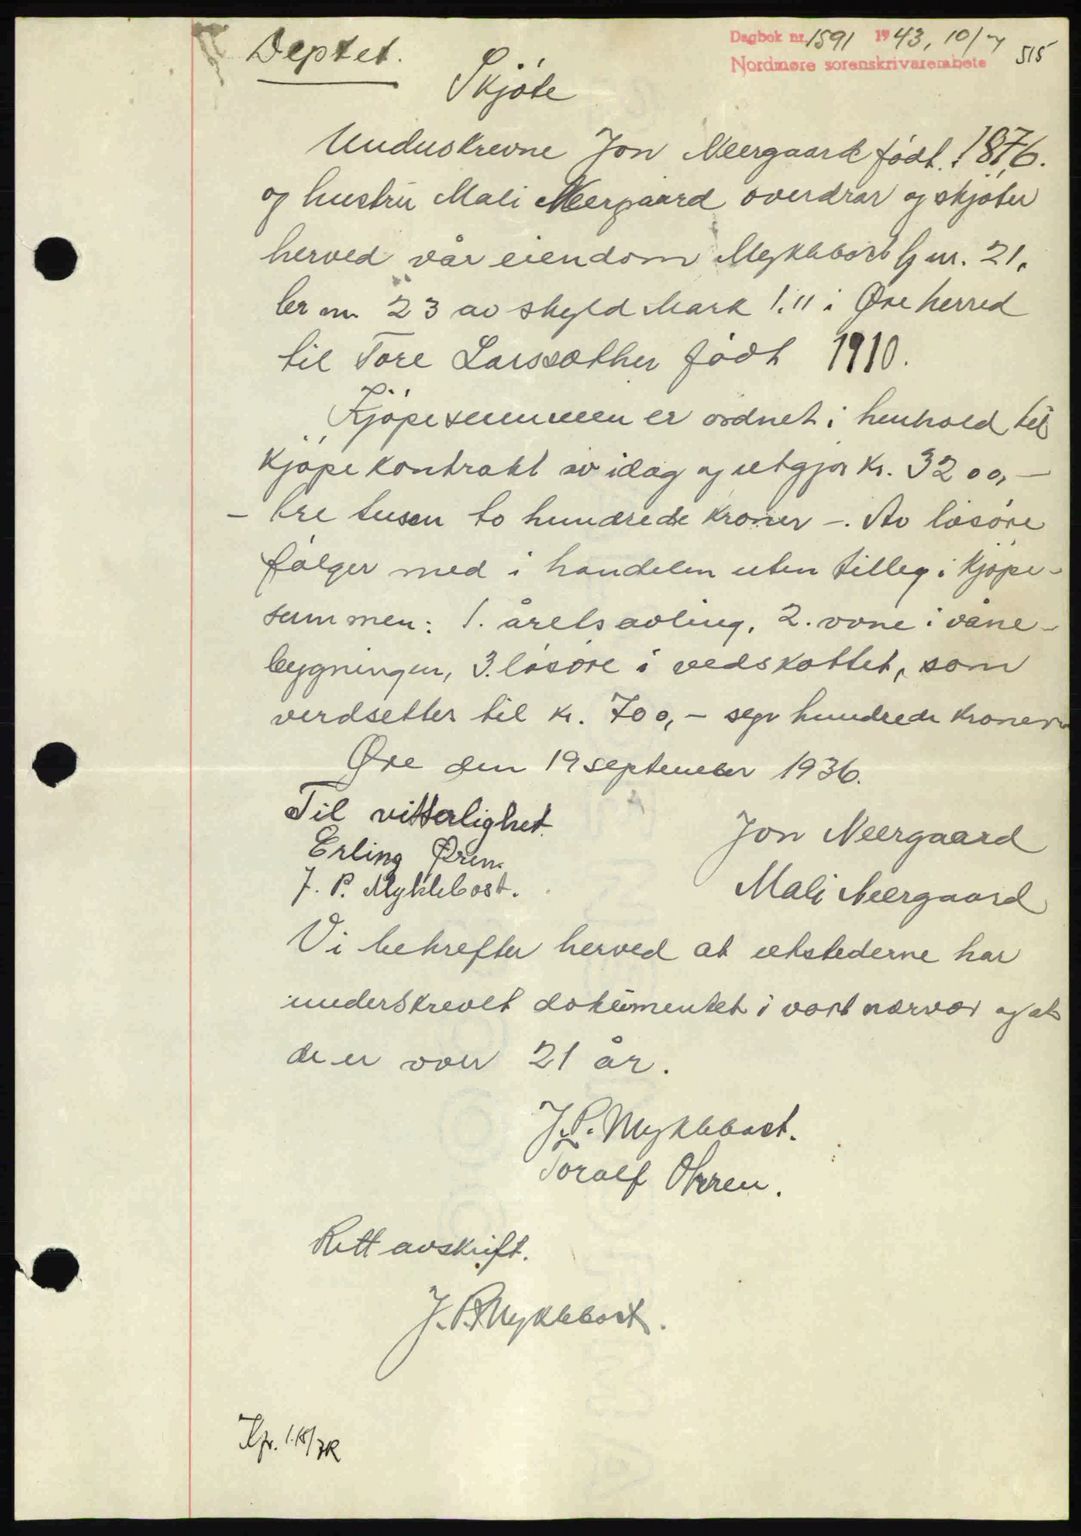 Deptet.
Dagbok nr. 1591 1943, 10/7
Nordmøre sorenskrivarembete
515
Skjöte
Underskrevne Jon Neergaard født 1876.
og hustru Mali Neergaard overdrar og skjöter
herved vår eiendom Myklebost g nr. 21,
br nr. 23 av skyld Mark 1.11 i Øre herred
til Tore Larssæther født 1910.
Kjöpesummen er ordnet i henhold til
kjöpekontrakt av idag og utgjör kr. 3200,—
— tre tusen to hundrede kroner —. Av lösöre
fölger med i handelen uten tilleg i kjöpe-
summen: 1. årets avling, 2. ovne i våne-
bygningen, 3. lösöre i vedskottet, som
verdsettes til kr. 700,— syv hundrede kroner
Øre den 19 september 1936.
Til vitterlighet
Erling Øren.
J. P. Myklebost.
Jon Neergaard
Mali Neergaard
Vi bekrefter herved at utstederne har
underskrevet dokumentet i vort nærvær og at
de er over 21 år.
J. P. Myklebost.
Toralf Ohren.
Rett avskrift.
J. P. Myklebost.